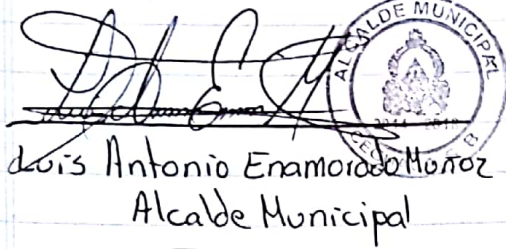 ALCALDE MUNICIPAL
2014 2018
Luis Antonio Enamorado Muñoz
Alcalde Municipal